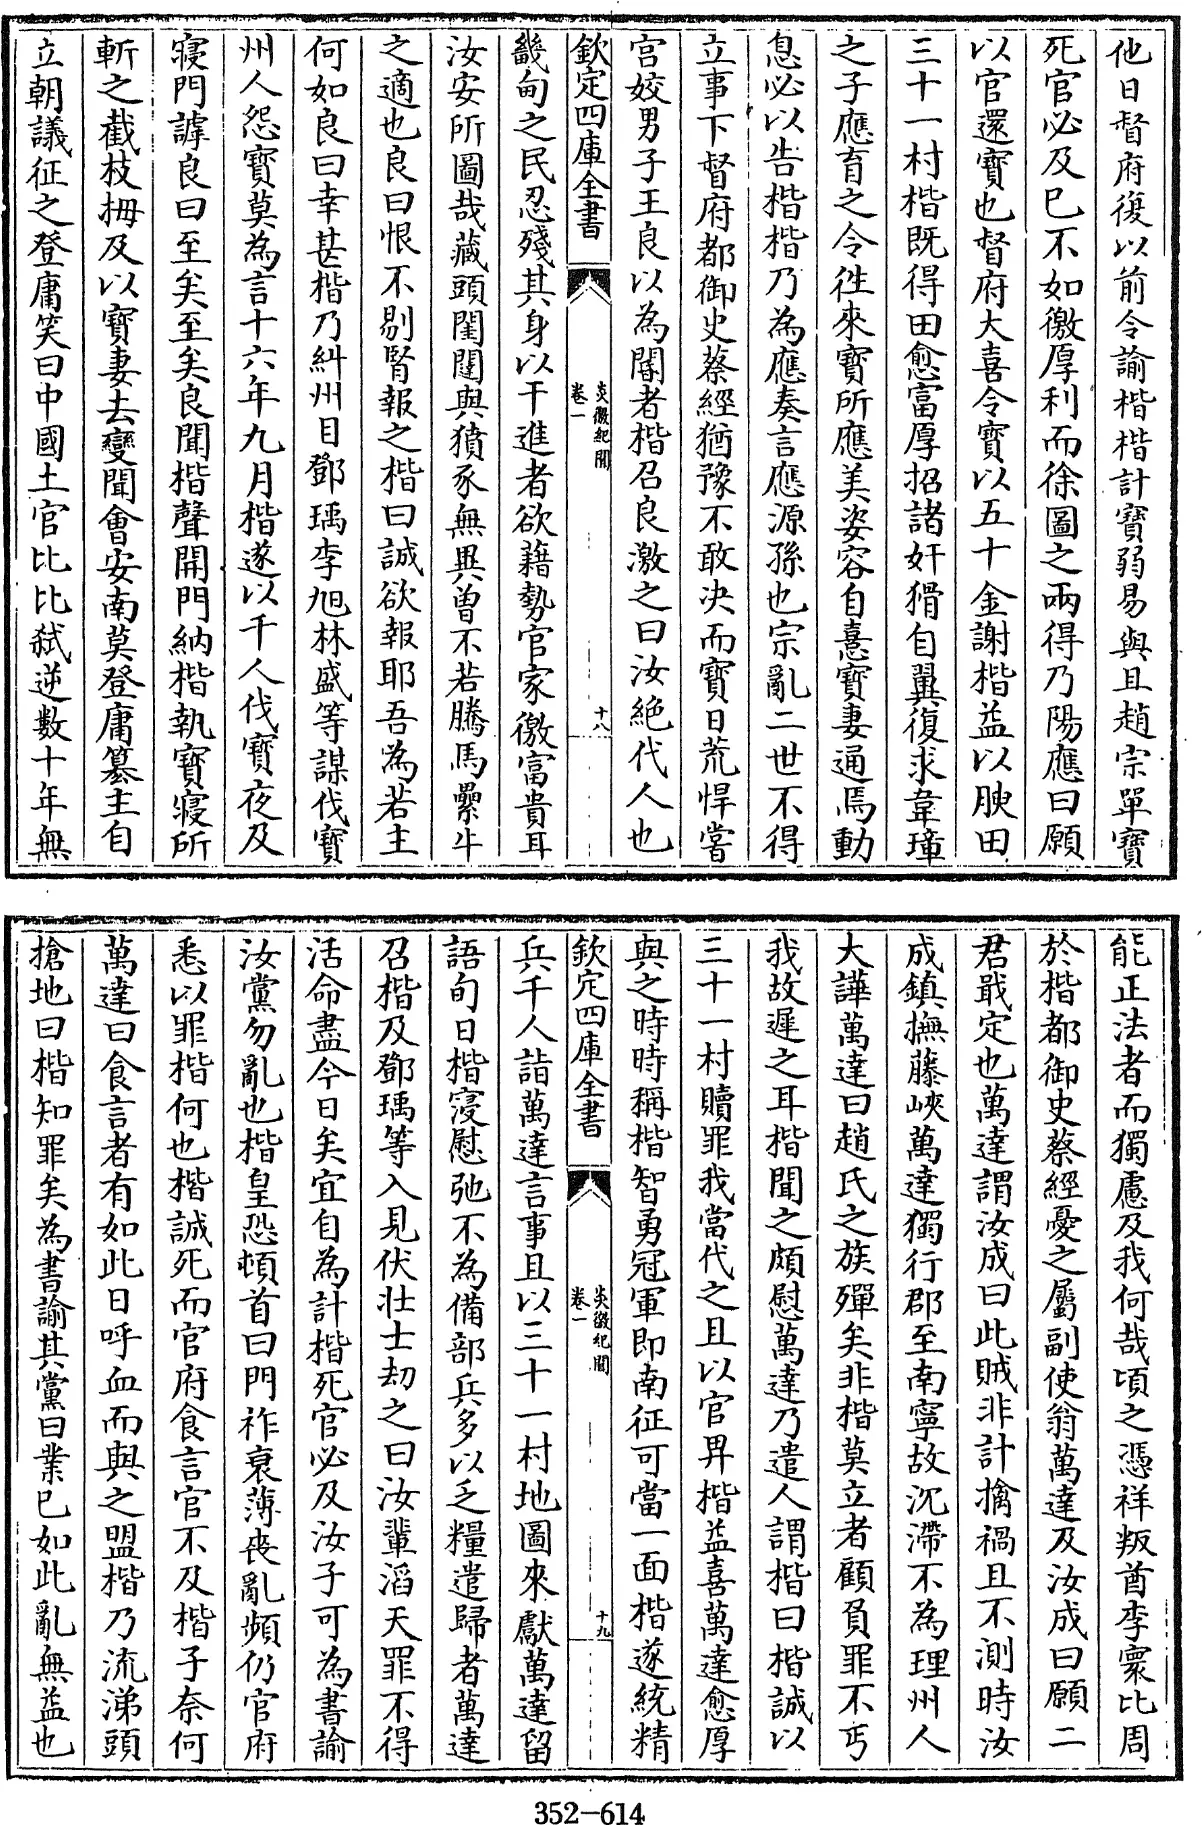 他日督府復以前令諭楷楷計寳弱易與且趙宗單寳
死官必及已不如徼厚利而徐圖之兩得乃陽應曰願
以官還寳也督府大喜令寳以五十金謝楷益以腴田
三十一村楷既得田愈富厚招諸奸猾自翼復求韋璋
之子應育之令徃來寳所應美姿容自憙寳妻通焉動
息必以告楷楷乃為應奏言應源孫也宗亂二世不得
立事下督府都御史蔡經猶豫不敢决而寳日荒悍嘗
宫姣男子王良以為閽者楷召良激之曰汝絶代人也
欽定四庫全書
炎徼紀聞
卷一
十八
畿甸之民忍殘其身以干進者欲藉勢官家徼富貴耳
汝安所圖哉藏頭闈闥與豶豕無異曽不若騰馬纍牛
之適也良曰恨不剔腎報之楷曰誠欲報耶吾為若主
何如良曰幸甚楷乃糾州目鄧瑀李旭林盛等謀伐寳
州人怨寳莫為言十六年九月楷遂以千人伐寳夜及
寢門謼良曰至矣至矣良聞楷聲開門納楷執寳寢所
斬之截枝拇及以寳妻去變聞會安南莫登庸簒主自
立朝議征之登庸笑曰中國土官比比弑逆數十年無
能正法者而獨慮及我何哉頃之憑祥叛酋李寰比周
於楷都御史蔡經憂之屬副使翁萬達及汝成曰願二
君戢定也萬達謂汝成曰此賊非計擒禍且不測時汝
成鎮撫藤峽萬達獨行郡至南寧故沉滯不為理州人
大譁萬達曰趙氏之族殫矣非楷莫立者顧負罪不丐
我故遲之耳楷聞之頗慰萬達乃遣人謂楷曰楷誠以
三十一村贖罪我當代之且以官畀楷益喜萬達愈厚
與之時時稱楷智勇冠軍即南征可當一面楷遂統精
欽定四庫全書
炎徼紀聞
卷一
十九
兵千人詣萬達言事且以三十一村地圖來獻萬達留
語旬日楷寖慰弛不為備部兵多以乏糧遣歸者萬達
召楷及鄧瑀等入見伏壮士劫之曰汝輩滔天罪不得
活命盡今日矣宜自為計楷死官必及汝子可為書諭
汝黨勿亂也楷皇恐頓首曰門祚衰薄喪亂頻仍官府
悉以罪楷何也楷誠死而官府食言官不及楷子奈何
萬達曰食言者有如此日呼血而與之盟楷乃流涕頭
搶地曰楷知罪矣為書諭其黨曰業已如此亂無益也
352-614